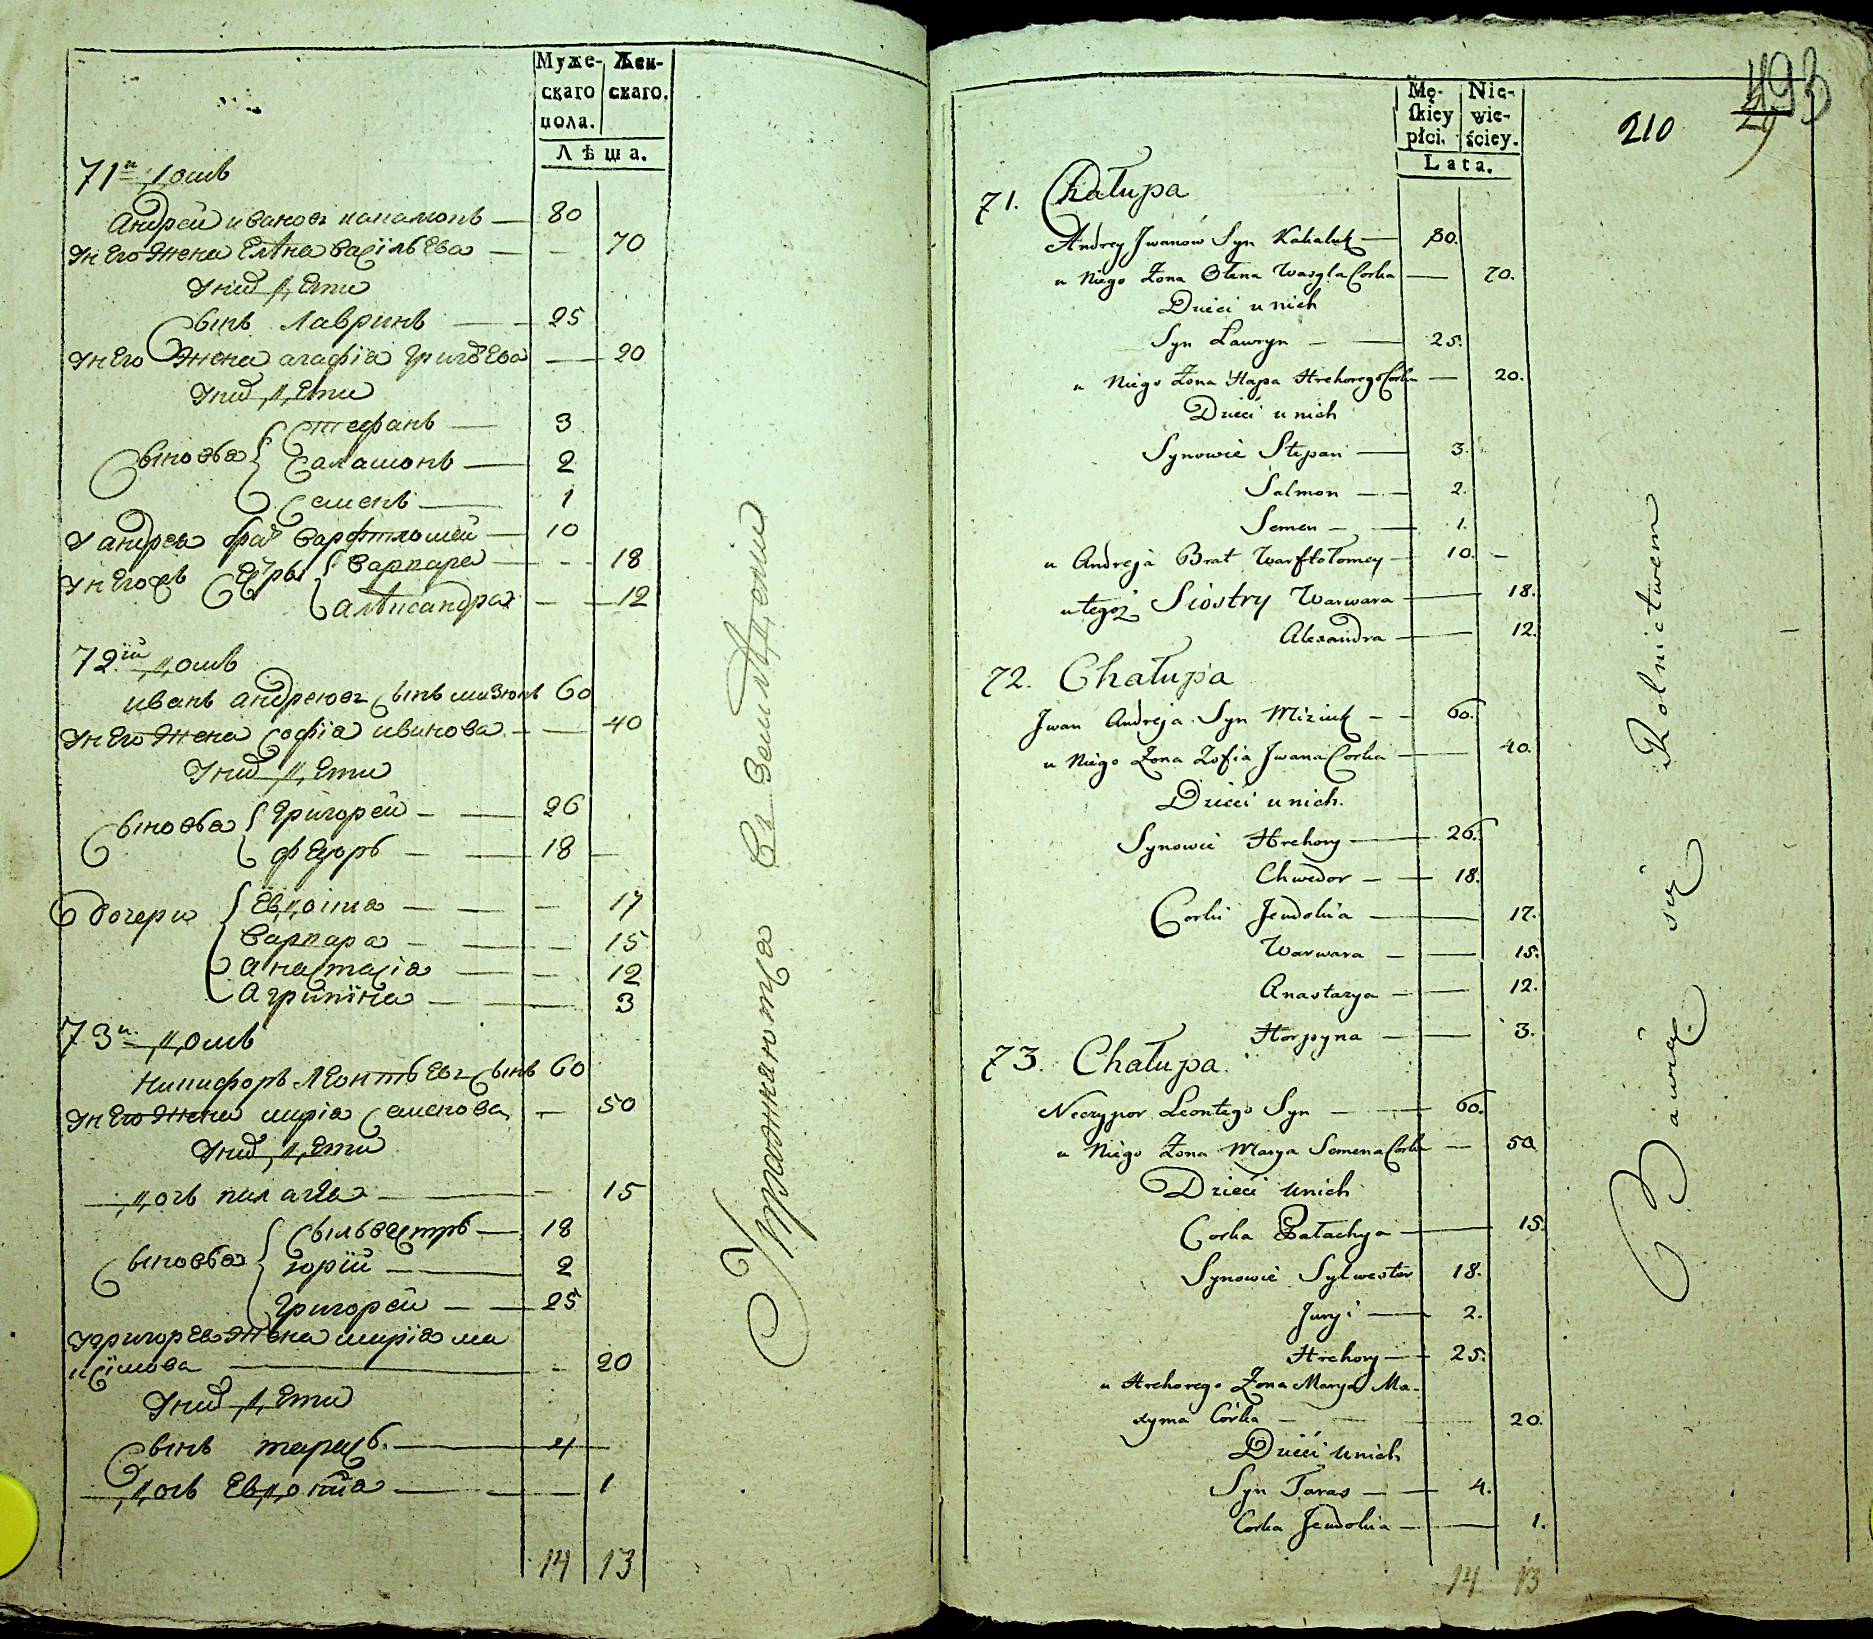 Муже-
скаго
пола.
Жен-
скаго.
Лѣта.
71й Домъ
Андрей Ивановъ — 80
у него жена Елѣна Василъева — 70
у нихъ Дети
Сынъ Лавринъ — 25
у него жена Агафiа — 20
у нихъ Дети
Стефанъ — 3
Сыновья Саламонъ — 2
Семенъ — 1
у Андрея братъ — 10
у него Сестры Варвара — 18
Александра — 12
72й Домъ
Иванъ Андреювъ Сынъ Мизюкъ 60
у него жена Софiа Иванова — 40
у нихъ Дети
Сыновья Григорей — 26
Федоръ — 18
Дочери Евдокiа — 17
Варвара — 15
Анастасiа — 12
Агрипина — 3
73й Домъ
Никифоръ Леонтьевъ Сынъ 60
у него жена Марiа Семенова — 50
у нихъ Дети
Дочь Палагея — 15
Сыльвестръ — 18
Сыновья Юрiй — 2
Григорей — 25
у Григорея жена Марiя Ма
ксiмова — 20
у нихъ Дети
Сынъ Тарасъ — 4
Дочь Евдокiа — 1
14 13
Упражнаются Въ
Mę-
skiey
płci.
Nie-
wie-
ściey.
Lata.
210
493
29
71. Chałupa
Andrey Jwanów Syn Kahaluk — 80.
u Niego Żona Ołena Wasyla Corka — 70.
Dzieci u nich
Syn Ławryn — 25.
u Niego Żona Hapa Hrehorego Corka — 20.
Dzieci u nich
Synowie Stepan — 3.
Salmon — 2.
Semen — 1.
u Andreja Brat Warfłołomey — 10. —
u tegoż Siostry Warwara — 18.
Alexandra — 12.
72. Chałupa
Jwan Andreja Syn Miziuk — 60.
u Niego Żona Zofia Jwana Corka — 40.
Dzieci u nich.
Synowie Hrehory — 26.
Chwedor — 18.
Corki Jewdokia — 17.
Warwara — 15.
Anastazya — 12.
Horpyna — 3.
73. Chałupa.
Neczypor Leontego Syn — 60.
u Niego Żona Marya Semena Corka — 50
Dzieci u nich
Corka Pałachya — 15.
Synowie Sylwester 18.
Juryi — 2.
Hrehory — 25.
u Hrehorego Żona Marya Ma-
xyma Córka — 20.
Dzieci u nich
Syn Taras — 4.
Corka Jewdokia — 1.
14 13
Bawią się Rolnictwem